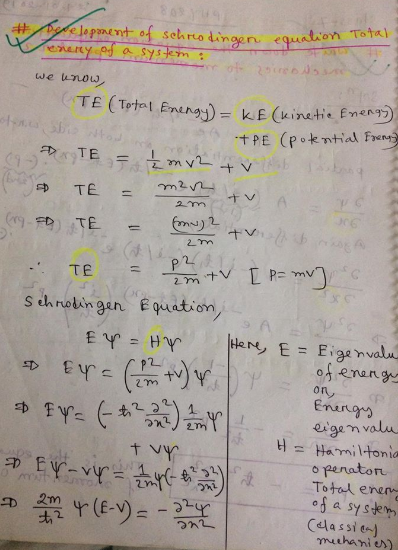 # Development of schrodinger equation Total
enery of a system :
we know,
TE (Total Energy) = KE (Kinetic Energy)
+PE (potential Energy)
⇒ TE = 1/2 mv² + V
⇒ TE = m²v²/2m + V
⇒ TE = (mv)²/2m + V
∴ TE = p²/2m + V [P= mv]
Schrodinger Equation,
Eψ = Hψ
⇒ Eψ = (p²/2m + V) ψ
⇒ Eψ = (-ħ² ∂²/∂x²) 1/2m ψ
+ Vψ
⇒ Eψ - Vψ = 1/2m ψ(-ħ² ∂²/∂x²)
⇒ 2m/ħ² ψ (E-V) = - ∂²ψ/∂x²
Here, E = Eigenvalu
of energy
or,
Energy
eigenvalu
H = Hamiltonia
operator
Total ener
of a system
(classical
mechanics)